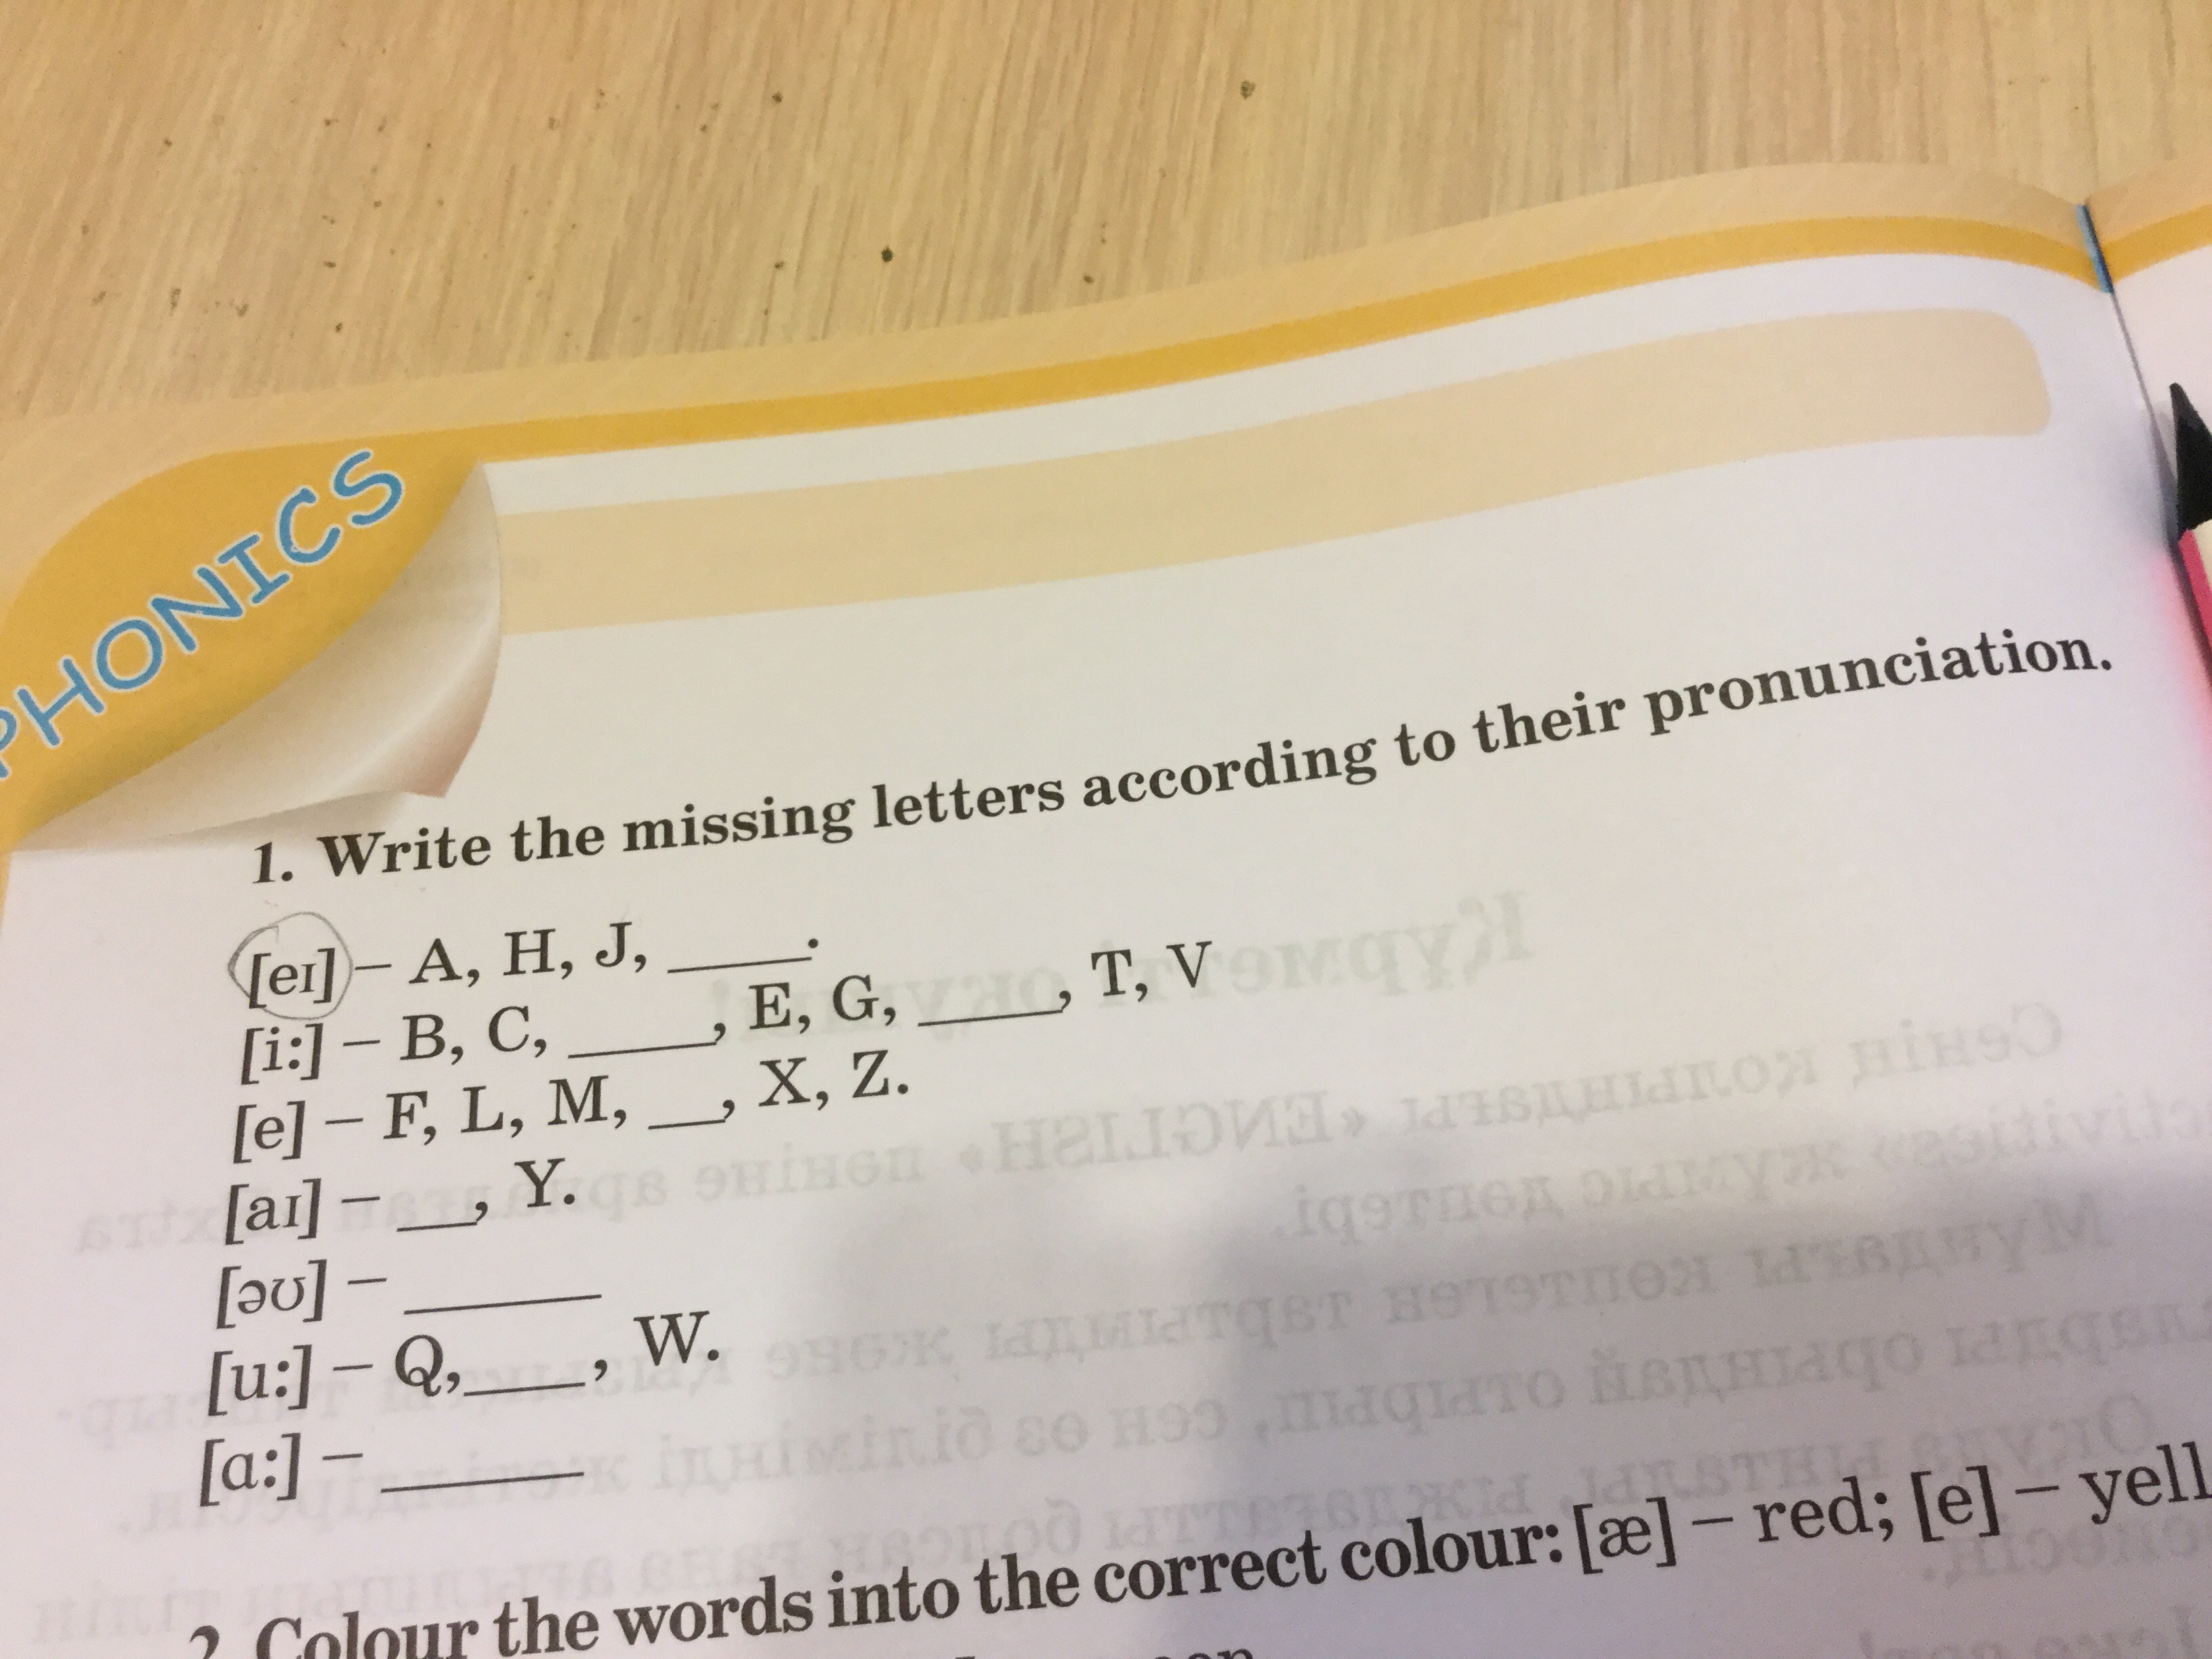 PHONICS
1. Write the missing letters according to their pronunciation.
[eɪ] – A, H, J, ____.
[i:] – B, C, ____, E, G, ____, T, V
[e] – F, L, M, __, X, Z.
[aɪ] – __, Y.
[əʊ] – ______
[u:] – Q,____, W.
[ɑ:] – ______
2. Colour the words into the correct colour: [æ] – red; [e] – yell